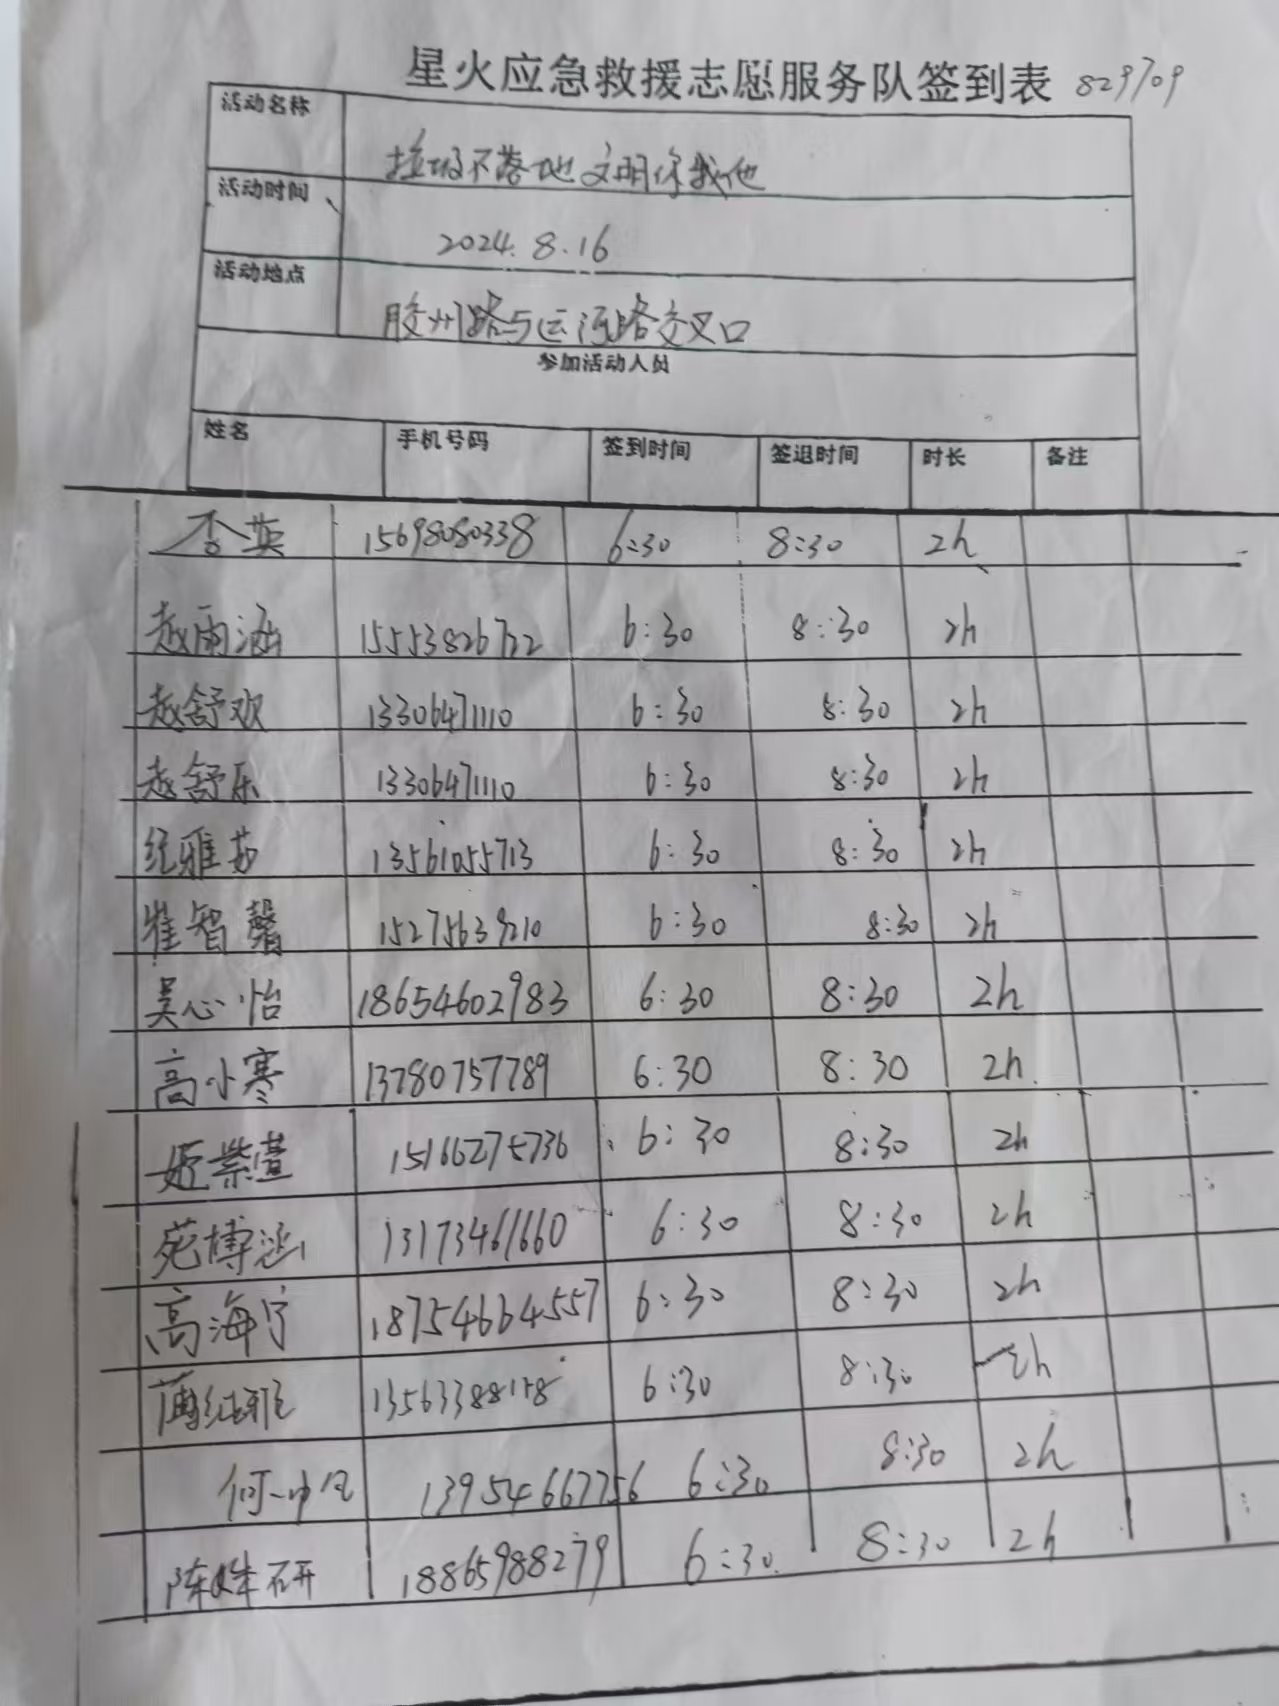 星火应急救援志愿服务队签到表 829709
活动名称 垃圾不落地 文明你我他
活动时间 2024.8.16
活动地点 胶州路与运河路交叉口
参加活动人员
姓名 手机号码 签到时间 签退时间 时长 备注
李英 15698080338 6:30 8:30 2h
赵雨涵 15553826722 6:30 8:30 2h
赵舒欢 13306471110 6:30 8:30 2h
赵舒乐 13306471110 6:30 8:30 2h
纪雅茹 13561055713 6:30 8:30 2h
崔智馨 15275639210 6:30 8:30 2h
吴心怡 18654602983 6:30 8:30 2h
高小寒 13780757789 6:30 8:30 2h
姬紫萱 15166275736 6:30 8:30 2h
苑博涵 13173461660 6:30 8:30 2h
高海宁 18754664557 6:30 8:30 2h
6:30 8:30 2h
13954667756 6:30 8:30 2h
陈姝研 18865988279 6:30 8:30 2h